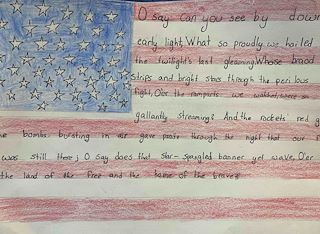 O say can you see by dawn
early light, What so proudly we hailed
the twilight's last gleaming, Whose broad
strips and bright stars through the perilous
fight, O'er the ramparts we watched, were so
gallantly streaming? And the rockets' red g
he bombs bursting in air gave proof through the night that our
was still there; O say does that star-spangled banner yet wave, O'er
the land of the free and the home of the brave?